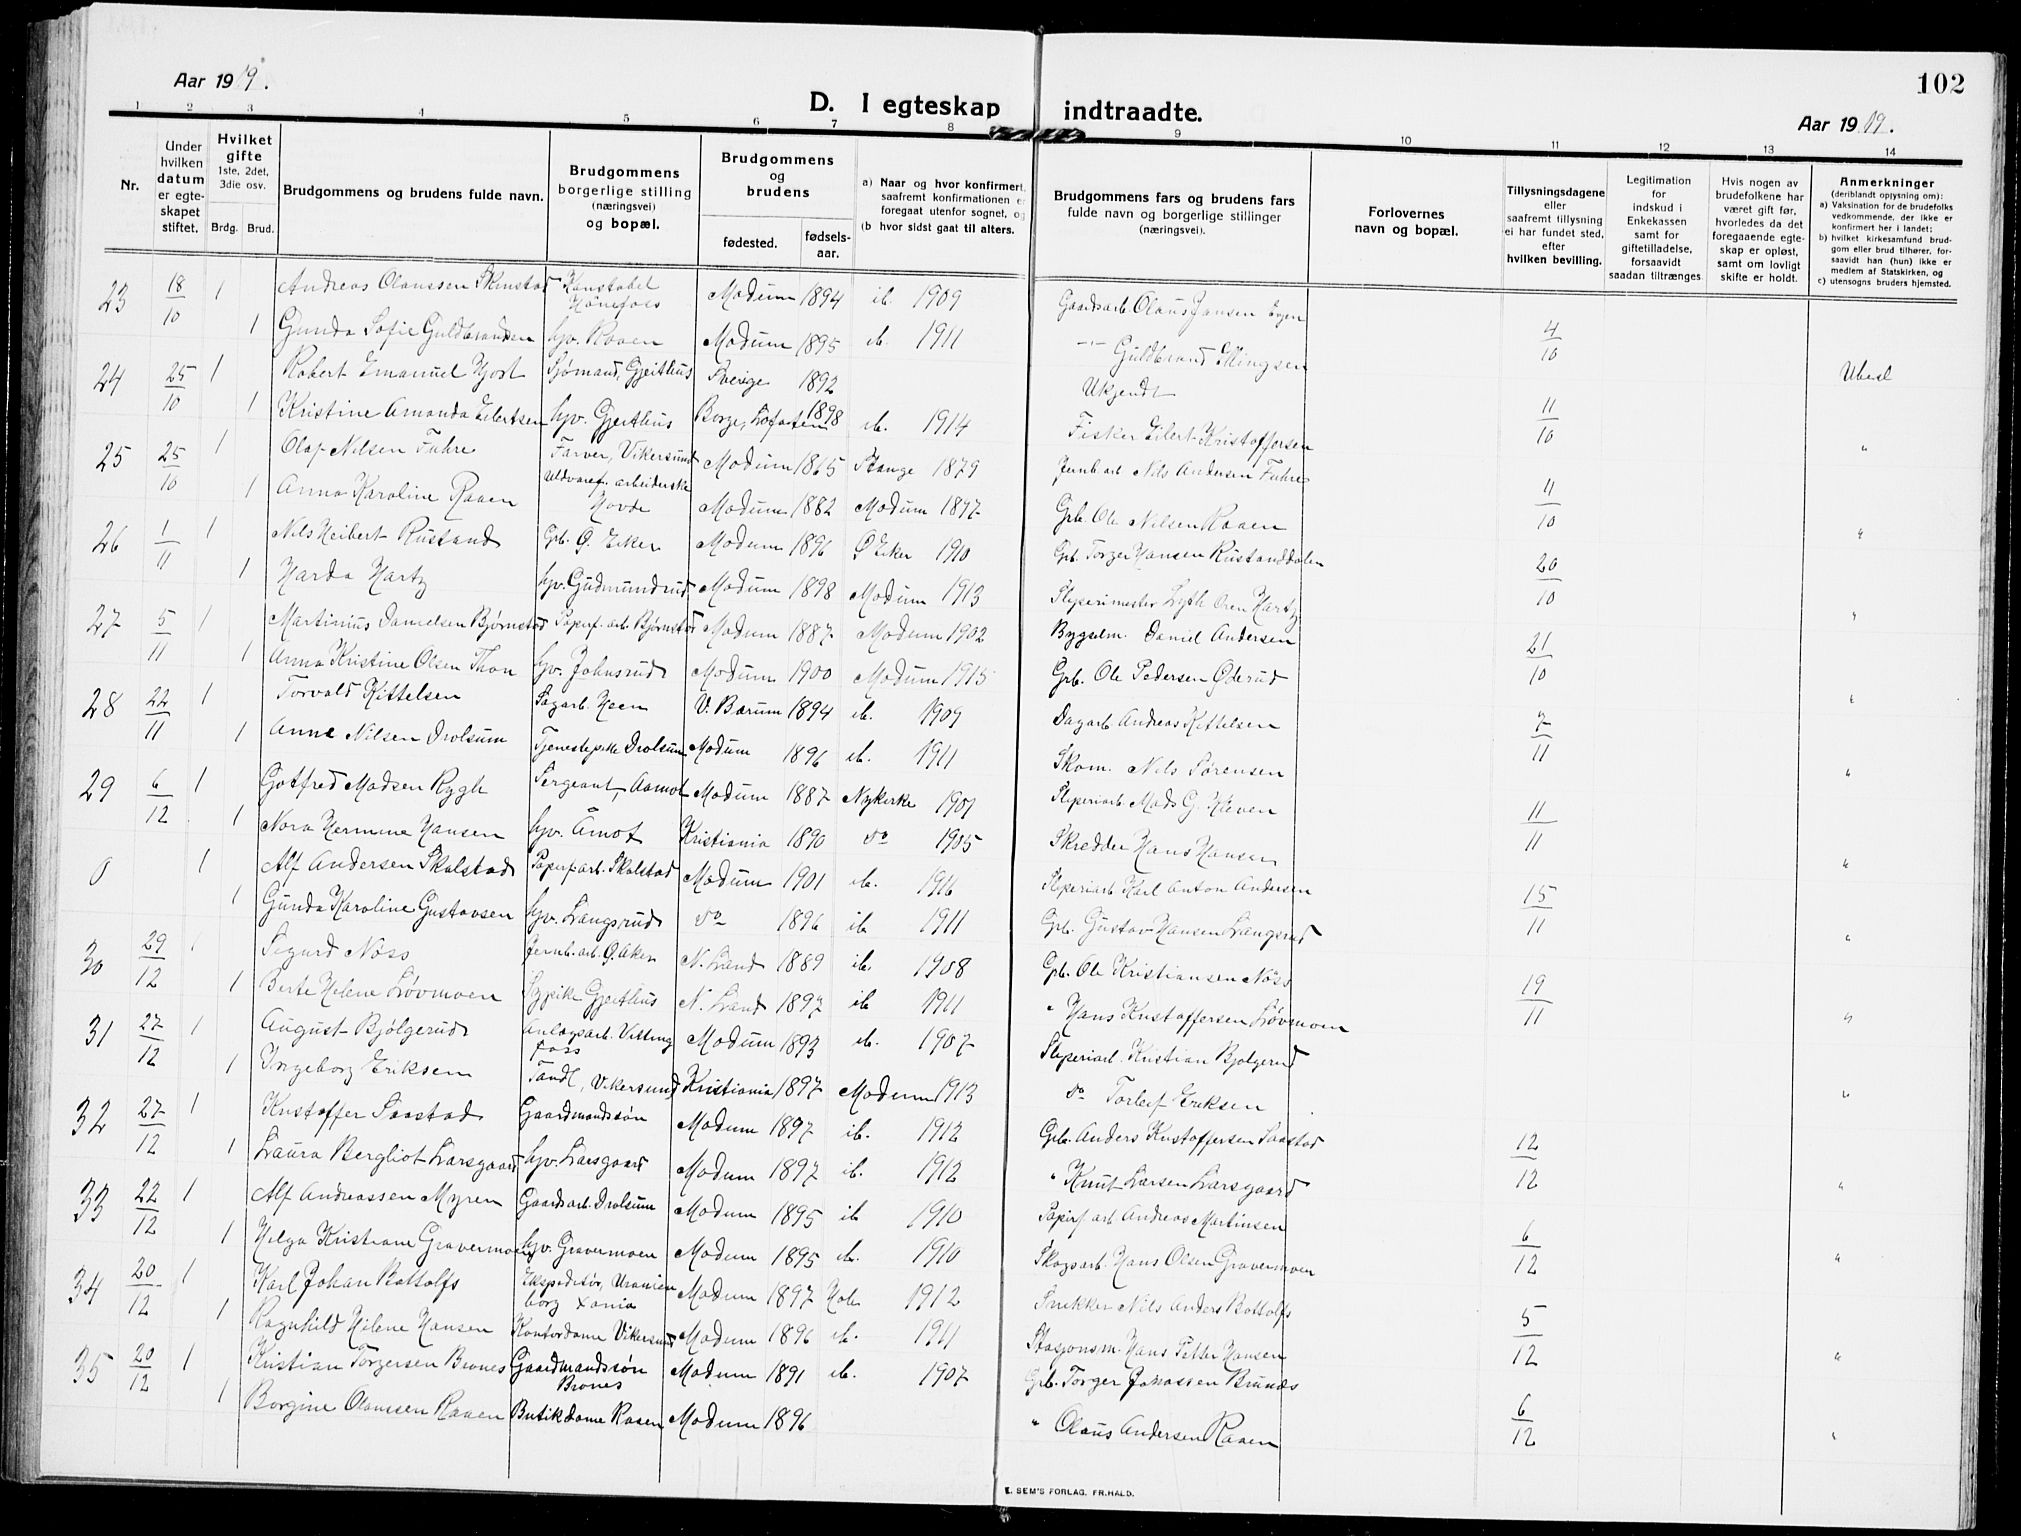 Aar 1919.
D. I egteskap indtraadte.
102
Aar 1919.
1 2 3 4 5 6 7 8 9 10 11 12 13 14
Nr.
Under hvilken datum er egteskapet stiftet.
Hvilket gifte
1ste, 2det, 3die osv.
Brdg. Brud.
Brudgommens og brudens fulde navn.
Brudgommens borgerlige stilling (næringsvei) og bopæl.
Brudgommens og brudens
fødested.
fødselsaar.
a) Naar og hvor konfirmert,
saafremt konfirmationen e
foregaat utenfor sognet, og
(b hvor sidst gaat til alters.
Brudgommens fars og brudens fars
fulde navn og borgerlige stillinger
(næringsvei).
Forlovernes
navn og bopæl.
Tillysningsdagene
eller
saafremt tillysning
ei har fundet sted,
efter
hvilken bevilling.
Legitimation
for
indskud i
Enkekassen
samt for
giftetilladelse,
forsaavidt
saadan tiltrænges
Hvis nogen av
brudefolkene har
været gift før,
hvorledes da det
foregaaende egte-
skap er opløst,
samt om lovligt
skifte er holdt.
Anmerkninger
(deriblandt opjysning om):
a) Vaksination for de brudefolks
vedkommende, der ikke er
konfirmert her i landet;
b) hvilket kirkesamfund brud-
gom eller brud tilhører, for-
saavidt han (hun) ikke er
medlem af Statskirken, og
c) utensogns bruders hjemsted.
23 18/10 1 Andreas Olaussen Skinstad Konstabel Hönefoss Modum 1894 ib. 1909 Gaardsarb. Olaus Jansen
1 Gunda Sofie Guldbrandsen hjv. Raaen Modum 1895 ib. 1911 -"- Guldbrand Elling­sen 4/10
24 25/10 1 Robert Emanuel Hjort Sjømand, Gjeithus Sverige 1892 Ukjendt
1 Kristine Amanda Eilertsen hjv. Gjeithus Borge, Lofoten 1898 ib. 1914 Fisker Eilert Kristoffersen 11/10
25 25/10 1 Olaf Nilsen Fuhre Farver, Vikersund Modum 1865 Stange 1879 Jernb.arb. Nils Andersen Fuhre "
1 Anna Karoline Raaen Uldvaref. arbeiderske Hovde Modum 1882 Modum 1897 Grb. Ole Nilsen Raaen 11/10
26 1/11 1 Nils Heibert Rustand Grb. Ø. Eker Modum 1896 Ø Eker 1910 Grb. Torger Hansen Rustanddalen "
1 Harda Hartz hjv. Gudmundrud Modum 1898 Modum 1913 Sliperimester Hartz 20/10
27 5/11 1 Martinius Danielsen Bjørnstad Papirf. arb. Bjørnstad Modum 1887 Modum 1902 Bygselm. Daniel Andersen "
1 Anna Kristine Olsen Thon hjv. Johnsrud Modum 1900 Modum 1915 Grb. Ole Pedersen Øderud 21/10
28 22/11 1 Torvald Kittelsen Sagarb. Heen V. Bærum 1894 ib. 1909 Dagarb. Andreas Kittelsen "
1 Anne Nilsen Drolsum Tjenestepike Drolsum Modum 1896 ib. 1911 Skom. Nils Sørensen 7/11
29 6/12 1 Gotfred Madsen Rygh Sergeant, Aamot Modum 1887 Nykirke 1901 Sliperiarb. Mads G. Kleven "
1 Nora Hermine Hansen hjv. Åmot Kristiania 1890 do 1905 Skredder Hans Hansen 11/11
0 1 Alf Andersen Skalstad Papirf.arb. Skalstad Modum 1901 ib. 1916 Sliperiarb. Karl Anton Andersen "
1 Gunda Karoline Gustavsen hjv. Langsrud do 1896 ib 1911 Grb. Gustav Hansen Langsrud 15/11
30 29/12 1 Sigurd Nöss Jernb.arb. Ø. Aker N. Land 1889 ib. 1908 Grb. Ole Kristiansen Nöss "
1 Berte Helene Lövmoen Sypike Gjeithus N. Land 1897 ib 1911 " Hans Kristoffersen Lövmoen 19/11
31 27/12 1 August Bjölgerud Anlægsarb. Vittingfoss Modum 1893 ib. 1907 Sliperiarb. Kristian Bjølgerud "
1 Ingeborg Eriksen Tandl, Vikersund Kristiania 1897 Modum 1913 do Torleif Eriksen "
32 27/12 1 Kristoffer Saastad Gaardmandssøn Modum 1897 ib. 1912 Grb. Anders Kristoffersen Saastad
1 Laura Bergliot Larsgaard hjv. Larsgaard Modum 1897 ib. 1912 " Knut Larsen Larsgaard 12/12 "
33 22/12 1 Alf Andreassen Myren Gaardsarb. Drolsum Modum 1895 ib 1910 Papirf. arb Andreas Martinsen
1 Helga Kristiane Gravermoen hjv. Gravermoen Modum 1895 ib. 1910 Skogsarb. Hans Olsen Gravermoen 6/12 "
34 20/12 1 Karl Johan Bottolfs Ekspeditør, Uranienborg Xania Modum 1897 Hole 1912 Snekker Nils Anders Bottolfs
1 Ragnhild Helene Hansen Kontordame Vikersund Modum 1896 ib. 1911 Stasjonsm. Hans Petter Hansen 5/12 "
35 20/12 1 Kristian Torgersen Brones Gaardmandssøn Brones Modum 1891 ib. 1907 Grb. Torger Johassen Brunæs
1 Borgine Olaussen Raaen Butikdame Raaen Modum 1896 " Olaus Andersen Raaen 6/12 "
E. SEM'S FORLAG, FR.HALD.